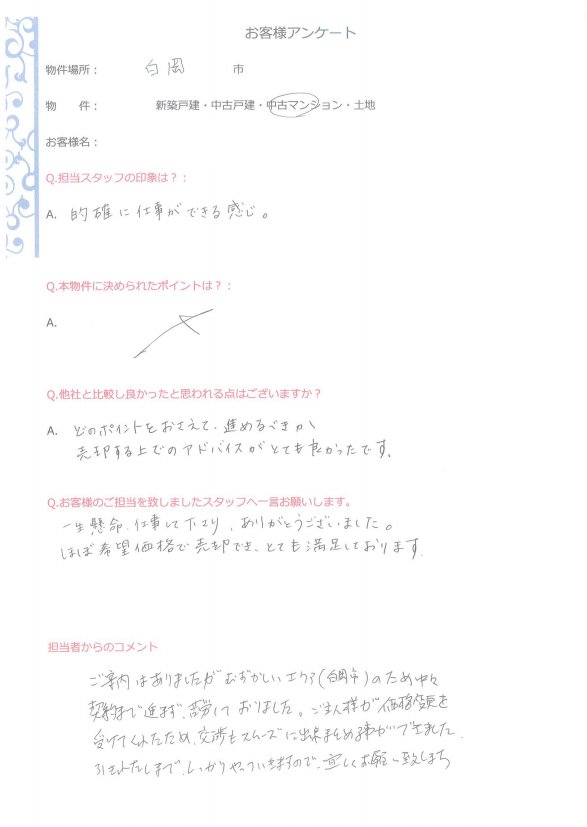 お客様アンケート
物件場所： 白岡 市
物　件： 新築戸建・中古戸建・中古マンション・土地
お客様名：
Q.担当スタッフの印象は？：
A. 的確に仕事ができる感じ。
Q.本物件に決められたポイントは？：
A.
Q.他社と比較し良かったと思われる点はございますか？
A. どのポイントをおさえて、進めるべきか
売却する上でのアドバイスがとても良かったです。
Q.お客様のご担当を致しましたスタッフへ一言お願いします。
一生懸命、仕事して下さり、ありがとうございました。
ほぼ希望価格で売却でき、とても満足しております。
担当者からのコメント
ご案内はありましたがむずかしいエリア(白岡市)のため中々
契約まで進まず、苦労しておりました。ご主人様が価格変更を
受けてくれたため、交渉もスムーズに出来まとめる事ができました。
引きわたしまで、しっかりやっていきますので、宜しくお願い致します